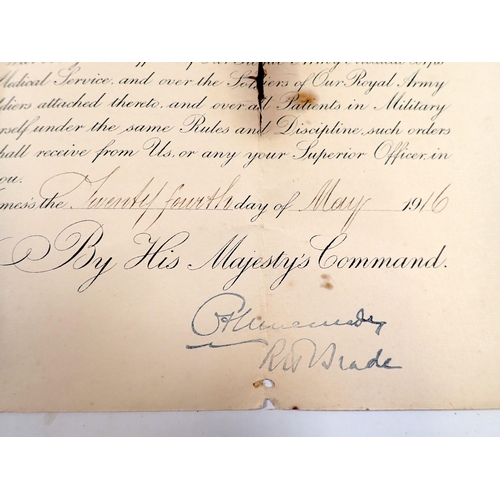 Medical Service, and over the Soldiers of Our Royal Army
diers attached thereto, and over all Patients in Military
rself under the same Rules and Discipline, such orders
hall receive from Us, or any your Superior Officer, in
ou.
mes's the Twenty fourth day of May 1916
By His Majesty's Command.
R H Brade